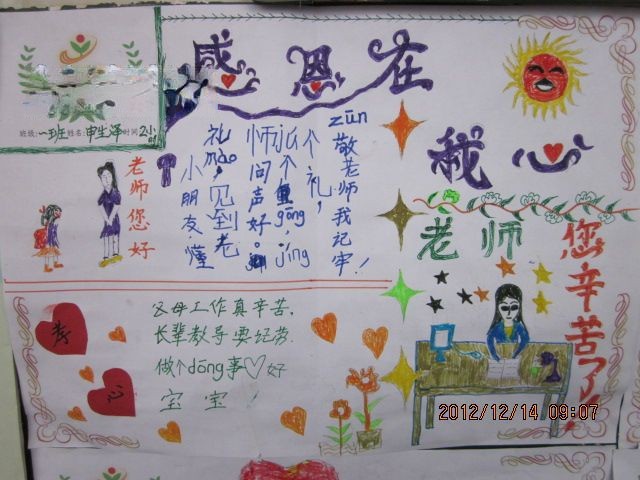 感恩在
我心
班级:一班姓名:申生泽时间
老师您好
小朋友,懂
礼mào,见到老
师问声好。
个gōng,jìng
个礼,
zūn敬老师我记牢!
老师
您辛苦了!
孝
心
父母工作真辛苦.
长辈教导要
做个dǒng事♡好
宝宝!
2012/12/14 09:07